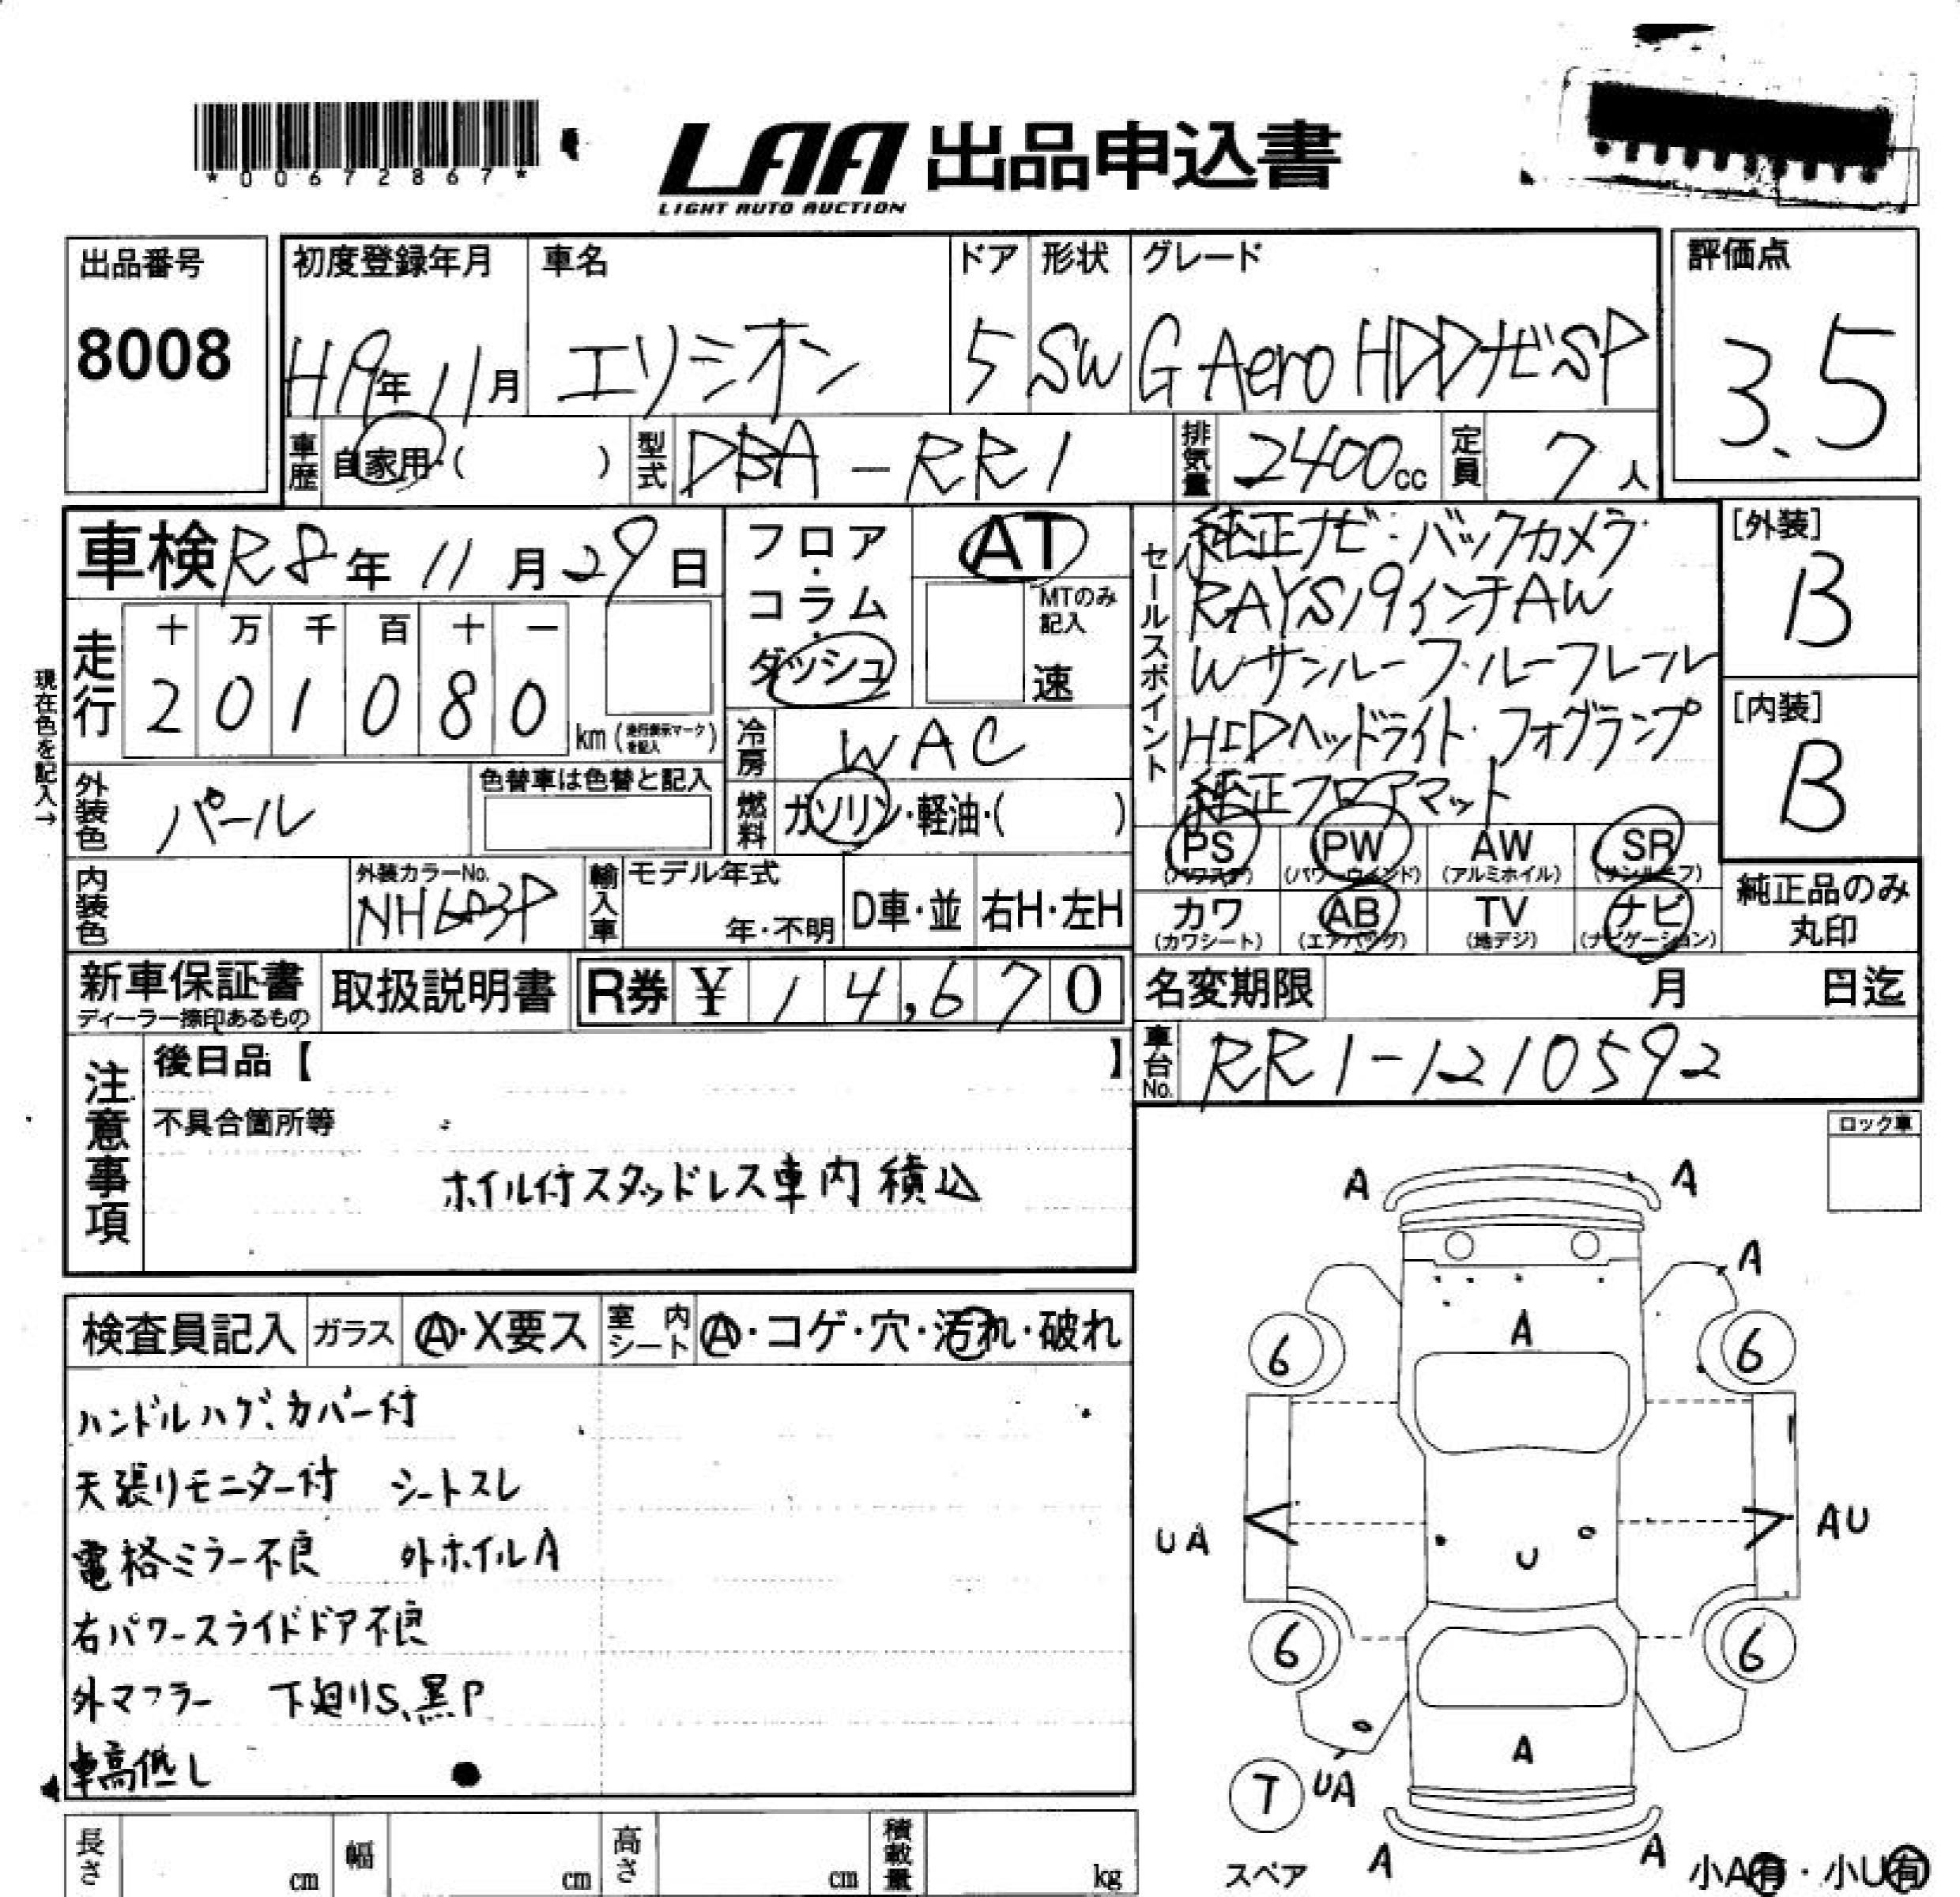 *00672867*
LAA 出品申込書
LIGHT AUTO AUCTION
出品番号
8008
初度登録年月
H19年11月
車名
エリシオン
ドア
5
形状
SW
グレード
G Aero HDDナビSP
評価点
3.5
車歴
自家用・( )
型式
DBA-RR1
排気量
2400cc
定員
7人
車検 R8年11月29日
フロア・コラム・ダッシュ
AT
MTのみ記入
速
セールスポイント
純正ナビ・バックカメラ
RAYS19インチAW
Wサンルーフ・ルーフレール
HIDヘッドライト・フォグランプ
純正フロアマット
[外装]
B
[内装]
B
現在色を記入→
走行
十 万 千 百 十 一
2 0 1 0 8 0
km (走行表示マークを記入)
冷房
WAC
外装色
パール
色替車は色替と記入
燃料
ガソリン・軽油・( )
PS (パワステ)
PW (パワーウインド)
AW (アルミホイル)
SR (サンルーフ)
カワ (カワシート)
AB (エアバッグ)
TV (地デジ)
ナビ (ナビゲーション)
純正品のみ丸印
内装色
外装カラーNo.
NH603P
輸入車
モデル年式
年・不明
D車・並
右H・左H
新車保証書
ディーラー捺印あるもの
取扱説明書
R券 ¥ 14,670
名変期限 月 日迄
車台No.
RR1-1210592
注意事項
後日品【 】
不具合箇所等
ホイル付スタッドレス車内積込
ロック車
検査員記入
ガラス
A・X要ス
室内シート
A・コゲ・穴・汚れ・破れ
ハンドルハゲ、カバー付
天張りモニター付 シートスレ
電格ミラー不良 外ホイルA
右パワースライドドア不良
外マフラー 下廻りS、黒P
車高低し
A A
A
A
6 6
UA
U
AU
6 6
A
T
UA
スペア
A A
小A有・小U有
長さ cm
幅 cm
高さ cm
積載量 kg